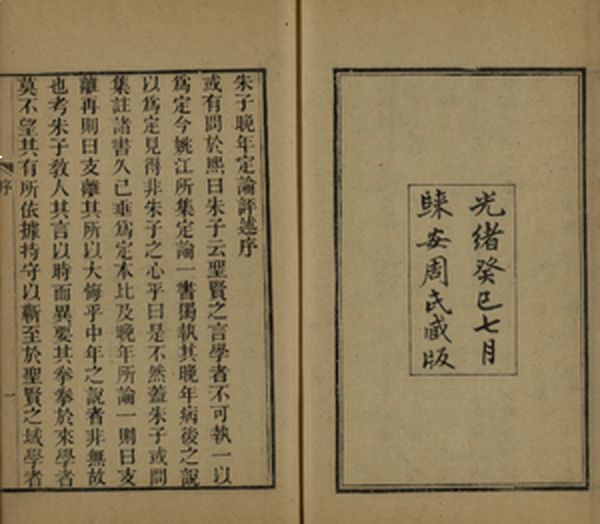 光緒癸巳七月
睞安周氏藏版
朱子晚年定論評述序
或有問於熙曰朱子云聖賢之言學者不可執一以
為定今姚江所集定論一書獨執其晚年病後之說
以為定見得非朱子之心乎曰是不然蓋朱子或問
集註諸書久已垂為定本比及晚年所論一則曰支
離再則曰支離其所以大悔乎中年之說者非無故
也考朱子教人其言以時而異要其拳拳於來學者
莫不望其有所依據持守以蘄至於聖賢之域學者
序
一